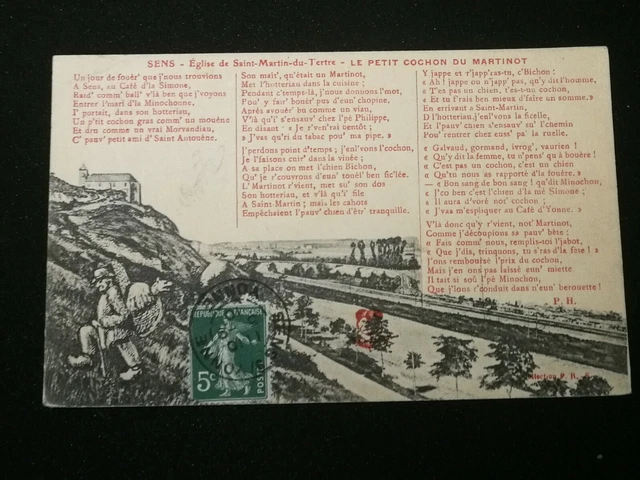 SENS - Église de Saint-Martin-du-Tertre - LE PETIT COCHON DU MARTINOT
Un jour de fouèr' que j'nous trouvions
A Sens, au Café d'la Simone,
Raid' comm' ball' v'là ben que j'voyons
Entrer l'mari d'la Minochonne.
I' portait, dans son hotteriau,
Un p'tit cochon gras comm' un mouène
Et dru comme un vrai Morvandiau,
C' pauv' petit ami d' Saint Antouène.
Son maît', qu'était un Martinot,
Met l'hotteriau dans la cuisine ;
Pendant c'temps-là, j'nous donnons l'mot,
Pou' y fair' bouèr' pus d'eun' chopine.
Après avouèr' bu comme un viau,
V'là qu'i s'ensauv' chez l'pé Philippe,
En disant « Je r'ven'rai bentôt ;
« J'vas qu'ri du tabac pou' ma pipe. »
J'perdons point d'temps ; j'enl'vons l'cochon,
Je l'faisons cuir' dans la vinée ;
A sa place on met l'chien Bichon,
Qu' je r'couvrons d'eun' touèl' ben fic'lée.
L' Martinot r'vient, met su' son dos
Son hotteriau, et v'là qu'i' file
A Saint-Martin ; mais les cahots
Empêchaient l'pauv' chien d'êtr' tranquille.
Y jappe et r'japp'ras-tu, c'Bichon !
« Ah ! jappe ou n'japp' pas, qu'y dit l'homme,
« T'es pas un chien, t'es-t-un cochon,
« Et tu f'rais ben mieux d'faire un somme. »
En errivant à Saint-Martin,
D'l'hotteriau, j'enl'vons la ficelle,
Et l'pauv' chien s'ensauv' su' l'chemin
Pou' rentrer chez euss' pa' la ruelle.
« Galvaud, gormand, ivrog', vaurien !
« Qu'y dit la femme, tu n'pens' qu'à bouère !
« C'est pas un cochon, c'est un chien
« Qu'tu nous as rapporté d'la fouère. »
— « Bon sang de bon sang ! qu'dit Minochon,
« J'co ben c'est l'chien d'la mé Simone ;
« Il aura d'voré not' cochon ;
« J'vas m'espliquer au Café d'Yonne. »
V'là donc qu'y r'vient, not' Martinot,
Comme j'découpions sa pauv' bête ;
« Fais comm' nous, remplis-toi l'jabot,
« Que j'dis, trinquons, tu s'ras d'la fête ! »
J'ons remboursé l'prix du cochon,
Mais j'en ons pas laissé eun' miette
Il tait si soû l'pè Minochon,
Que j'lons r'conduit dans n'eun' berouette !
P. H.
REPUBLIQUE FRANÇAISE
5c
POSTES